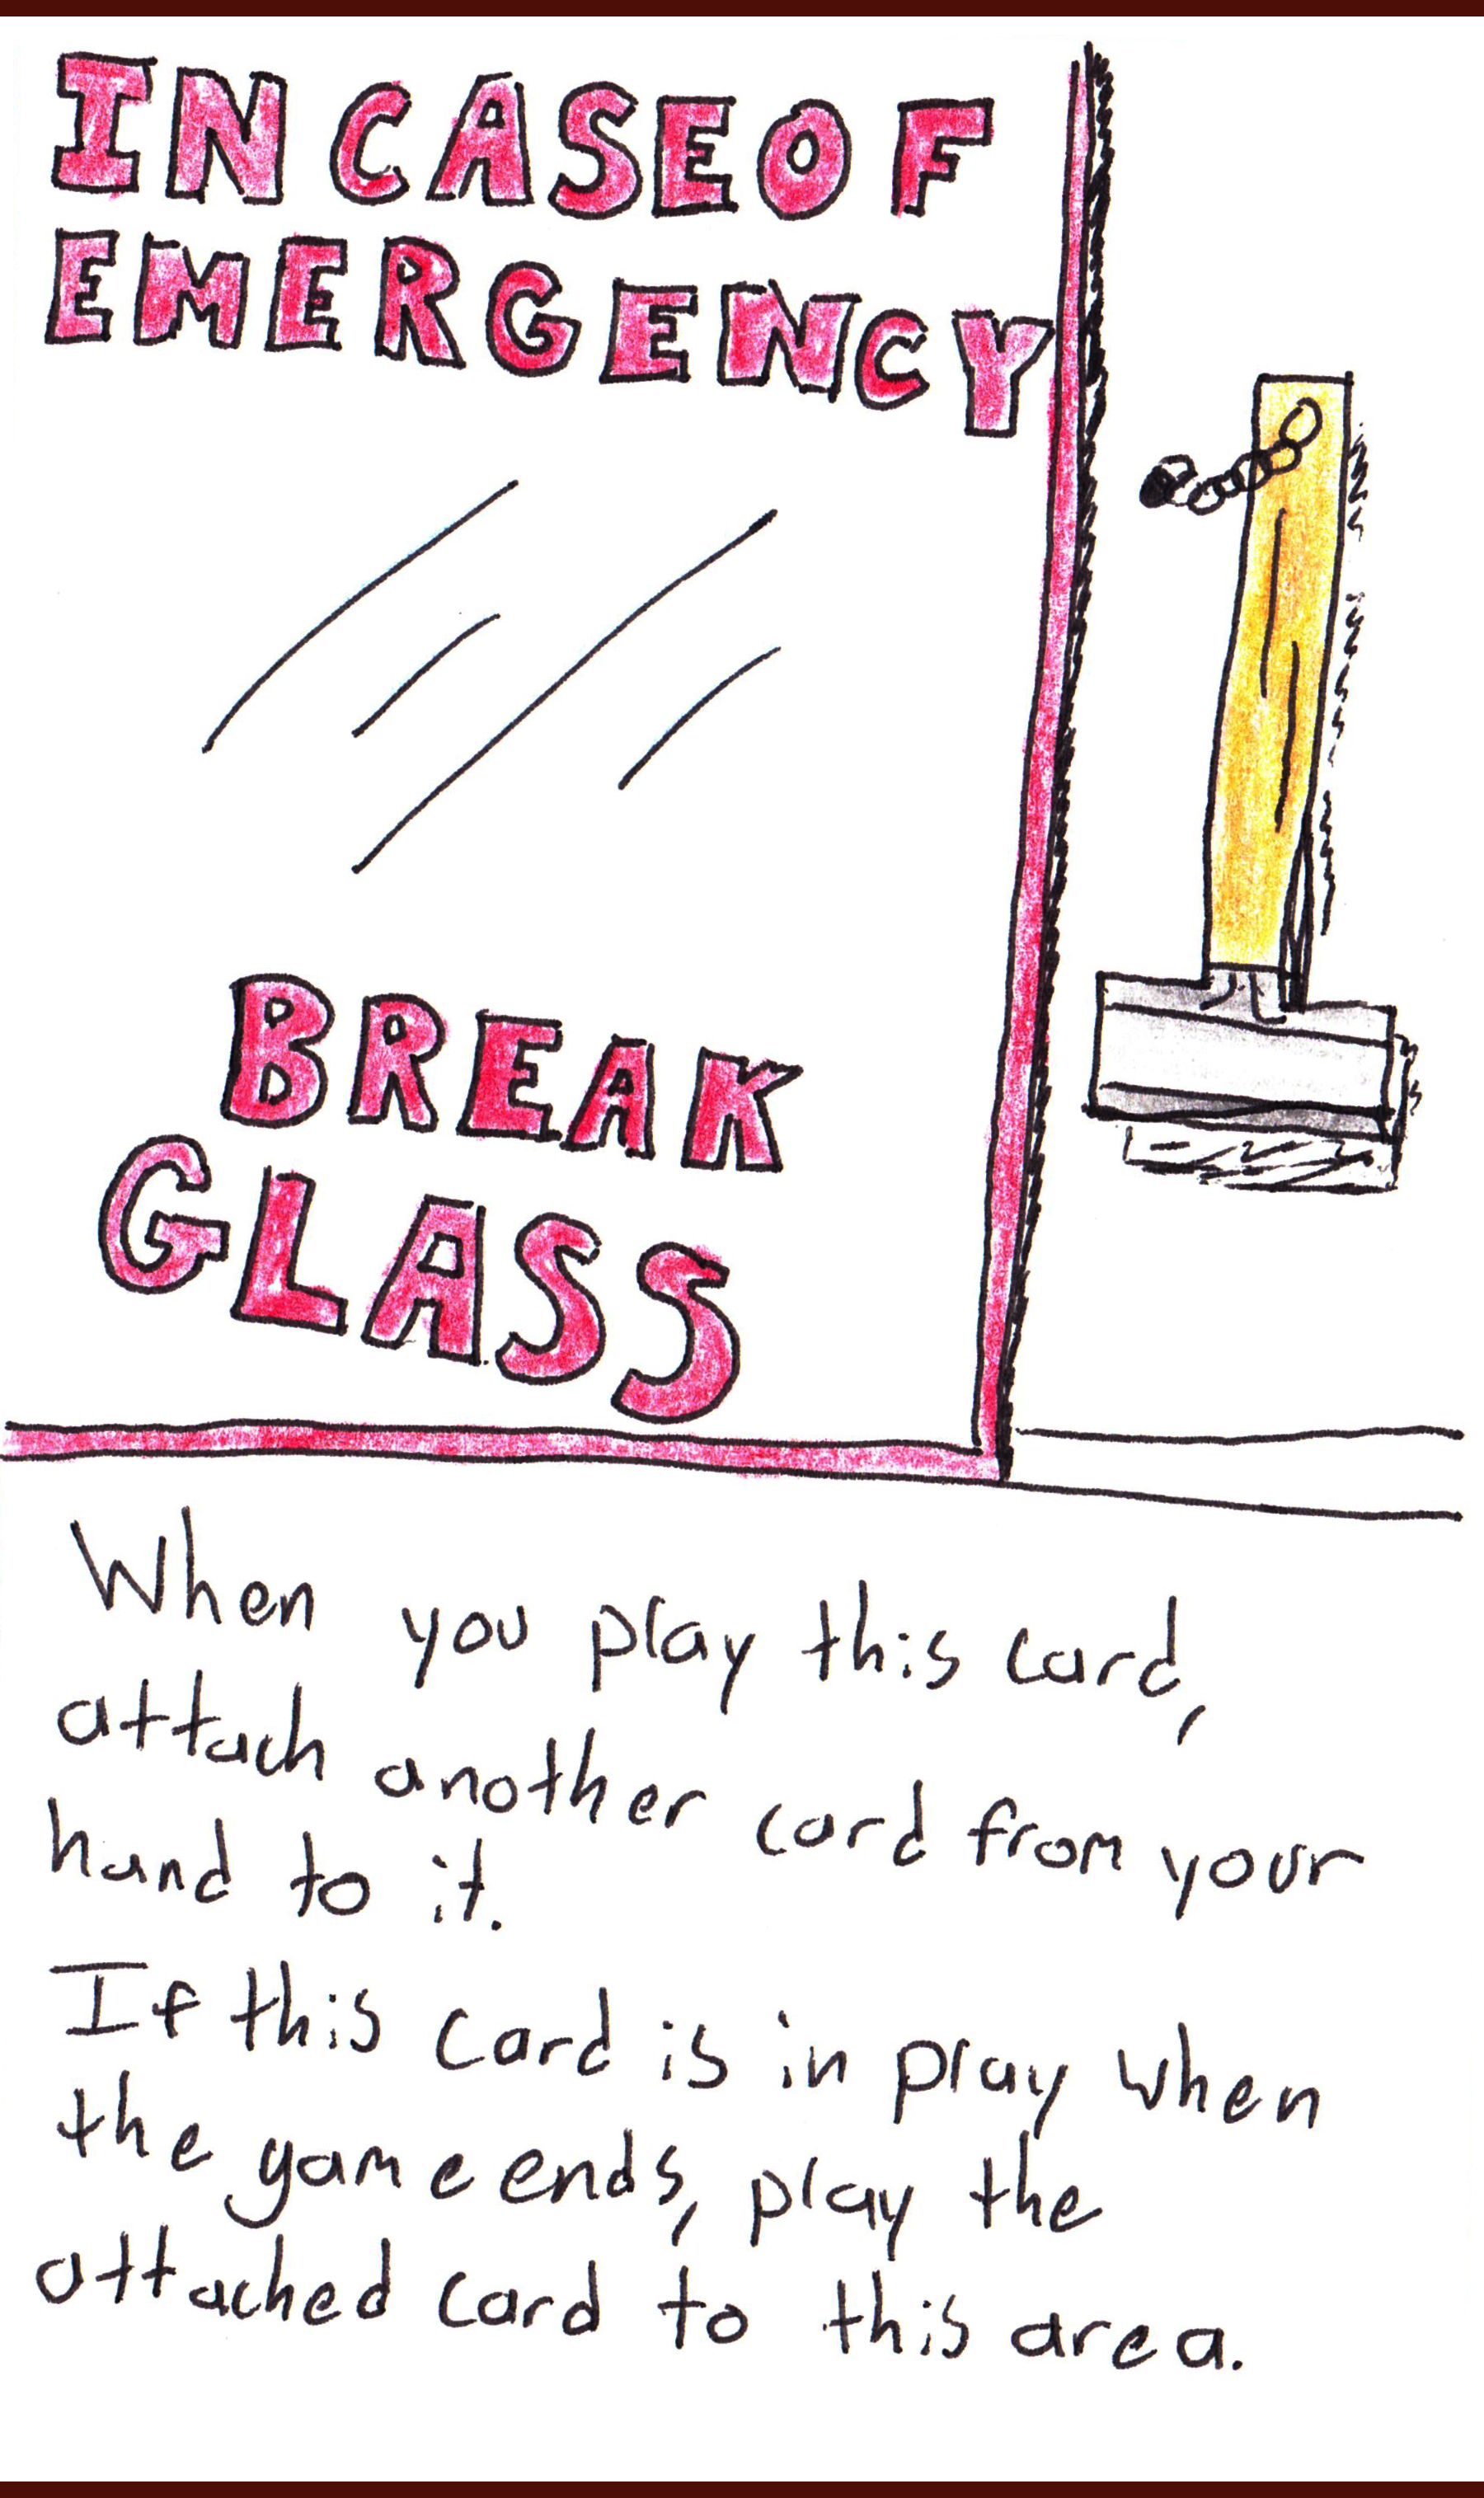 IN CASE OF
EMERGENCY
BREAK
GLASS
When you play this card,
attach another card from your
hand to it.
If this card is in play when
the game ends, play the
attached card to this area.